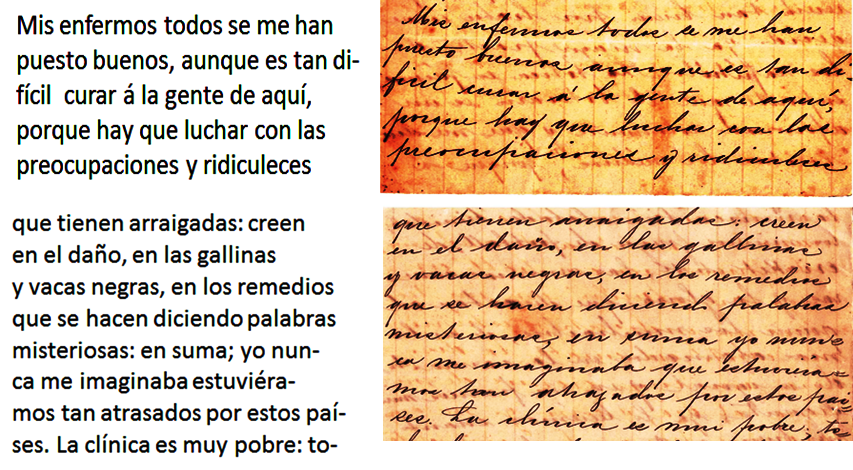 Mis enfermos todos se me han
puesto buenos, aunque es tan di-
fícil curar á la gente de aquí,
porque hay que luchar con las
preocupaciones y ridiculeces
que tienen arraigadas: creen
en el daño, en las gallinas
y vacas negras, en los remedios
que se hacen diciendo palabras
misteriosas: en suma; yo nun-
ca me imaginaba estuviéra-
mos tan atrasados por estos paí-
ses. La clínica es muy pobre: to-
Mis enfermos todos se me han
puesto buenos aunque es tan di-
fícil curar á la gente de aquí,
porque hay que luchar con las
preocupaciones y ridiculeces
que tienen arraigadas: creen
en el daño, en las gallinas
y vacas negras, en los remedios
que se hacen diciendo palabras
misteriosas, en suma yo nun=
ca me imaginaba que estuviéra=
mos tan atrazados por estos paí-
ses. La clínica es mui pobre, to=